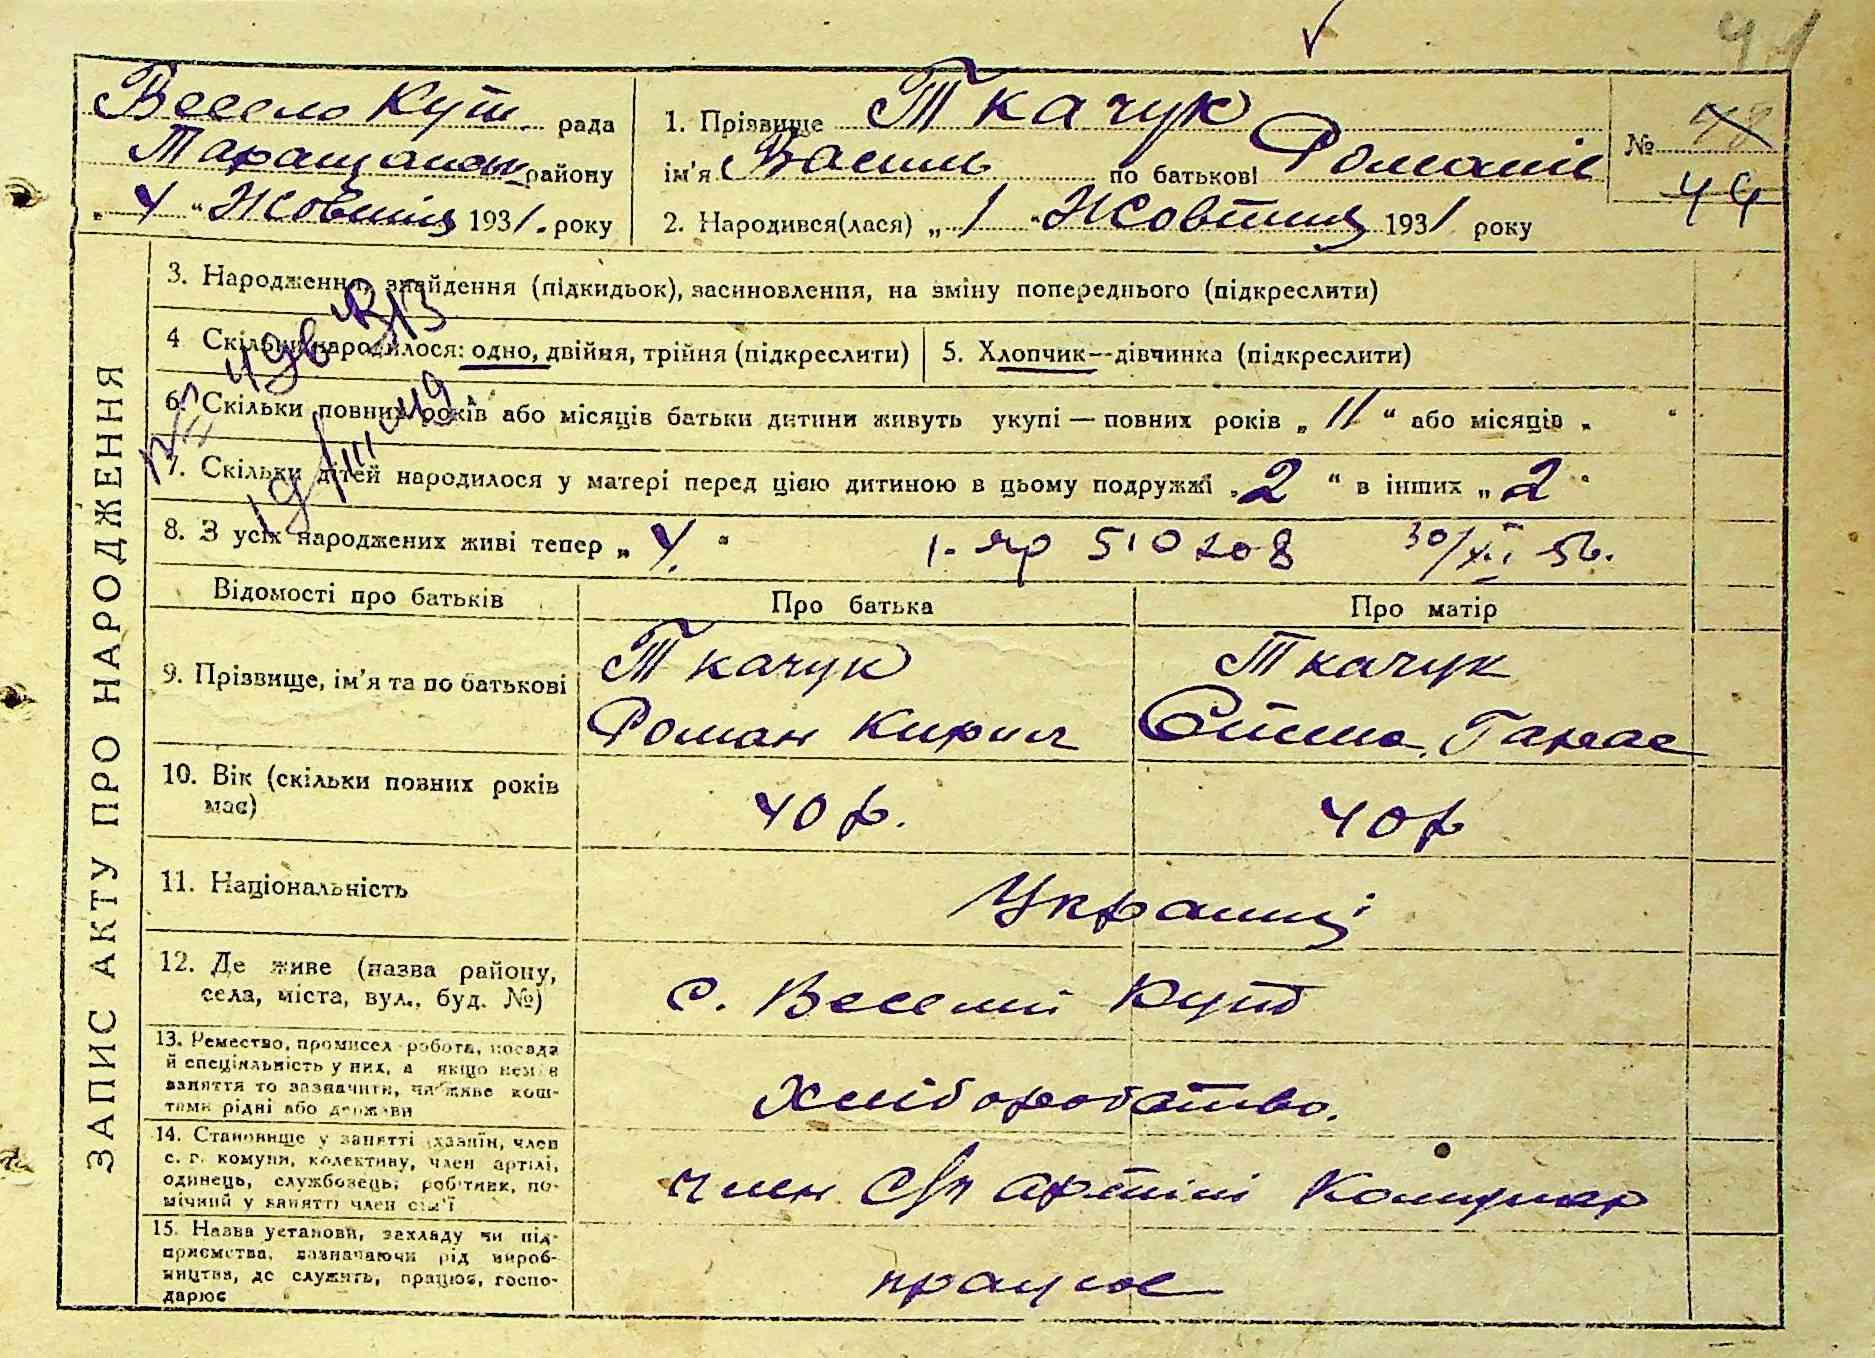 41
Весело Кут. рада
Таращанськ району
„ 4 “ Жовтня 1931. року
1. Прізвище Ткачук
ім'я Василь по батькові Романів
2. Народився(лася) „ 1 “ Жовтня 1931 року
№ 78
44
ЗАПИС АКТУ ПРО НАРОДЖЕННЯ
3. Народження, знайдення (підкидьок), засиновлення, на зміну попереднього (підкреслити)
4 Скільки народилося: одно, двійня, трійня (підкреслити)
5. Хлопчик—дівчинка (підкреслити)
6. Скільки повних років або місяців батьки дитини живуть укупі — повних років „ 11 “ або місяців „ “
7. Скільки дітей народилося у матері перед цією дитиною в цьому подружжі „ 2 “ в інших „ 2 “
8. З усіх народжених живі тепер „ 4. “
1-яр 510208 30/XI 56.
19/III 49
Відомості про батьків
Про батька
Про матір
9. Прізвище, ім'я та по батькові
Ткачук
Роман Кирил
Ткачук
10. Вік (скільки повних років має)
40 р.
40 р
11. Національність
Українці
12. Де живе (назва району,
села, міста, вул., буд. №)
с. Веселий Кут
13. Ремество, промисел робота, посада
й спеціяльність у них, а якщо нем'є
заняття то зазначити, чи живе кош-
тами рідні або держави
Хліборобство.
14. Становище у занятті (хазяїн, член
с. г. комуни, колективу, член артілі,
одинець, службовець, робітник, по-
мічний у занятті член сім'ї
Член с/г артілі Комунар
15. Назва установи, закладу чи під-
приємства, зазначаючи рід вироб-
ництва, де служить, працює, госпо-
дарює
працює